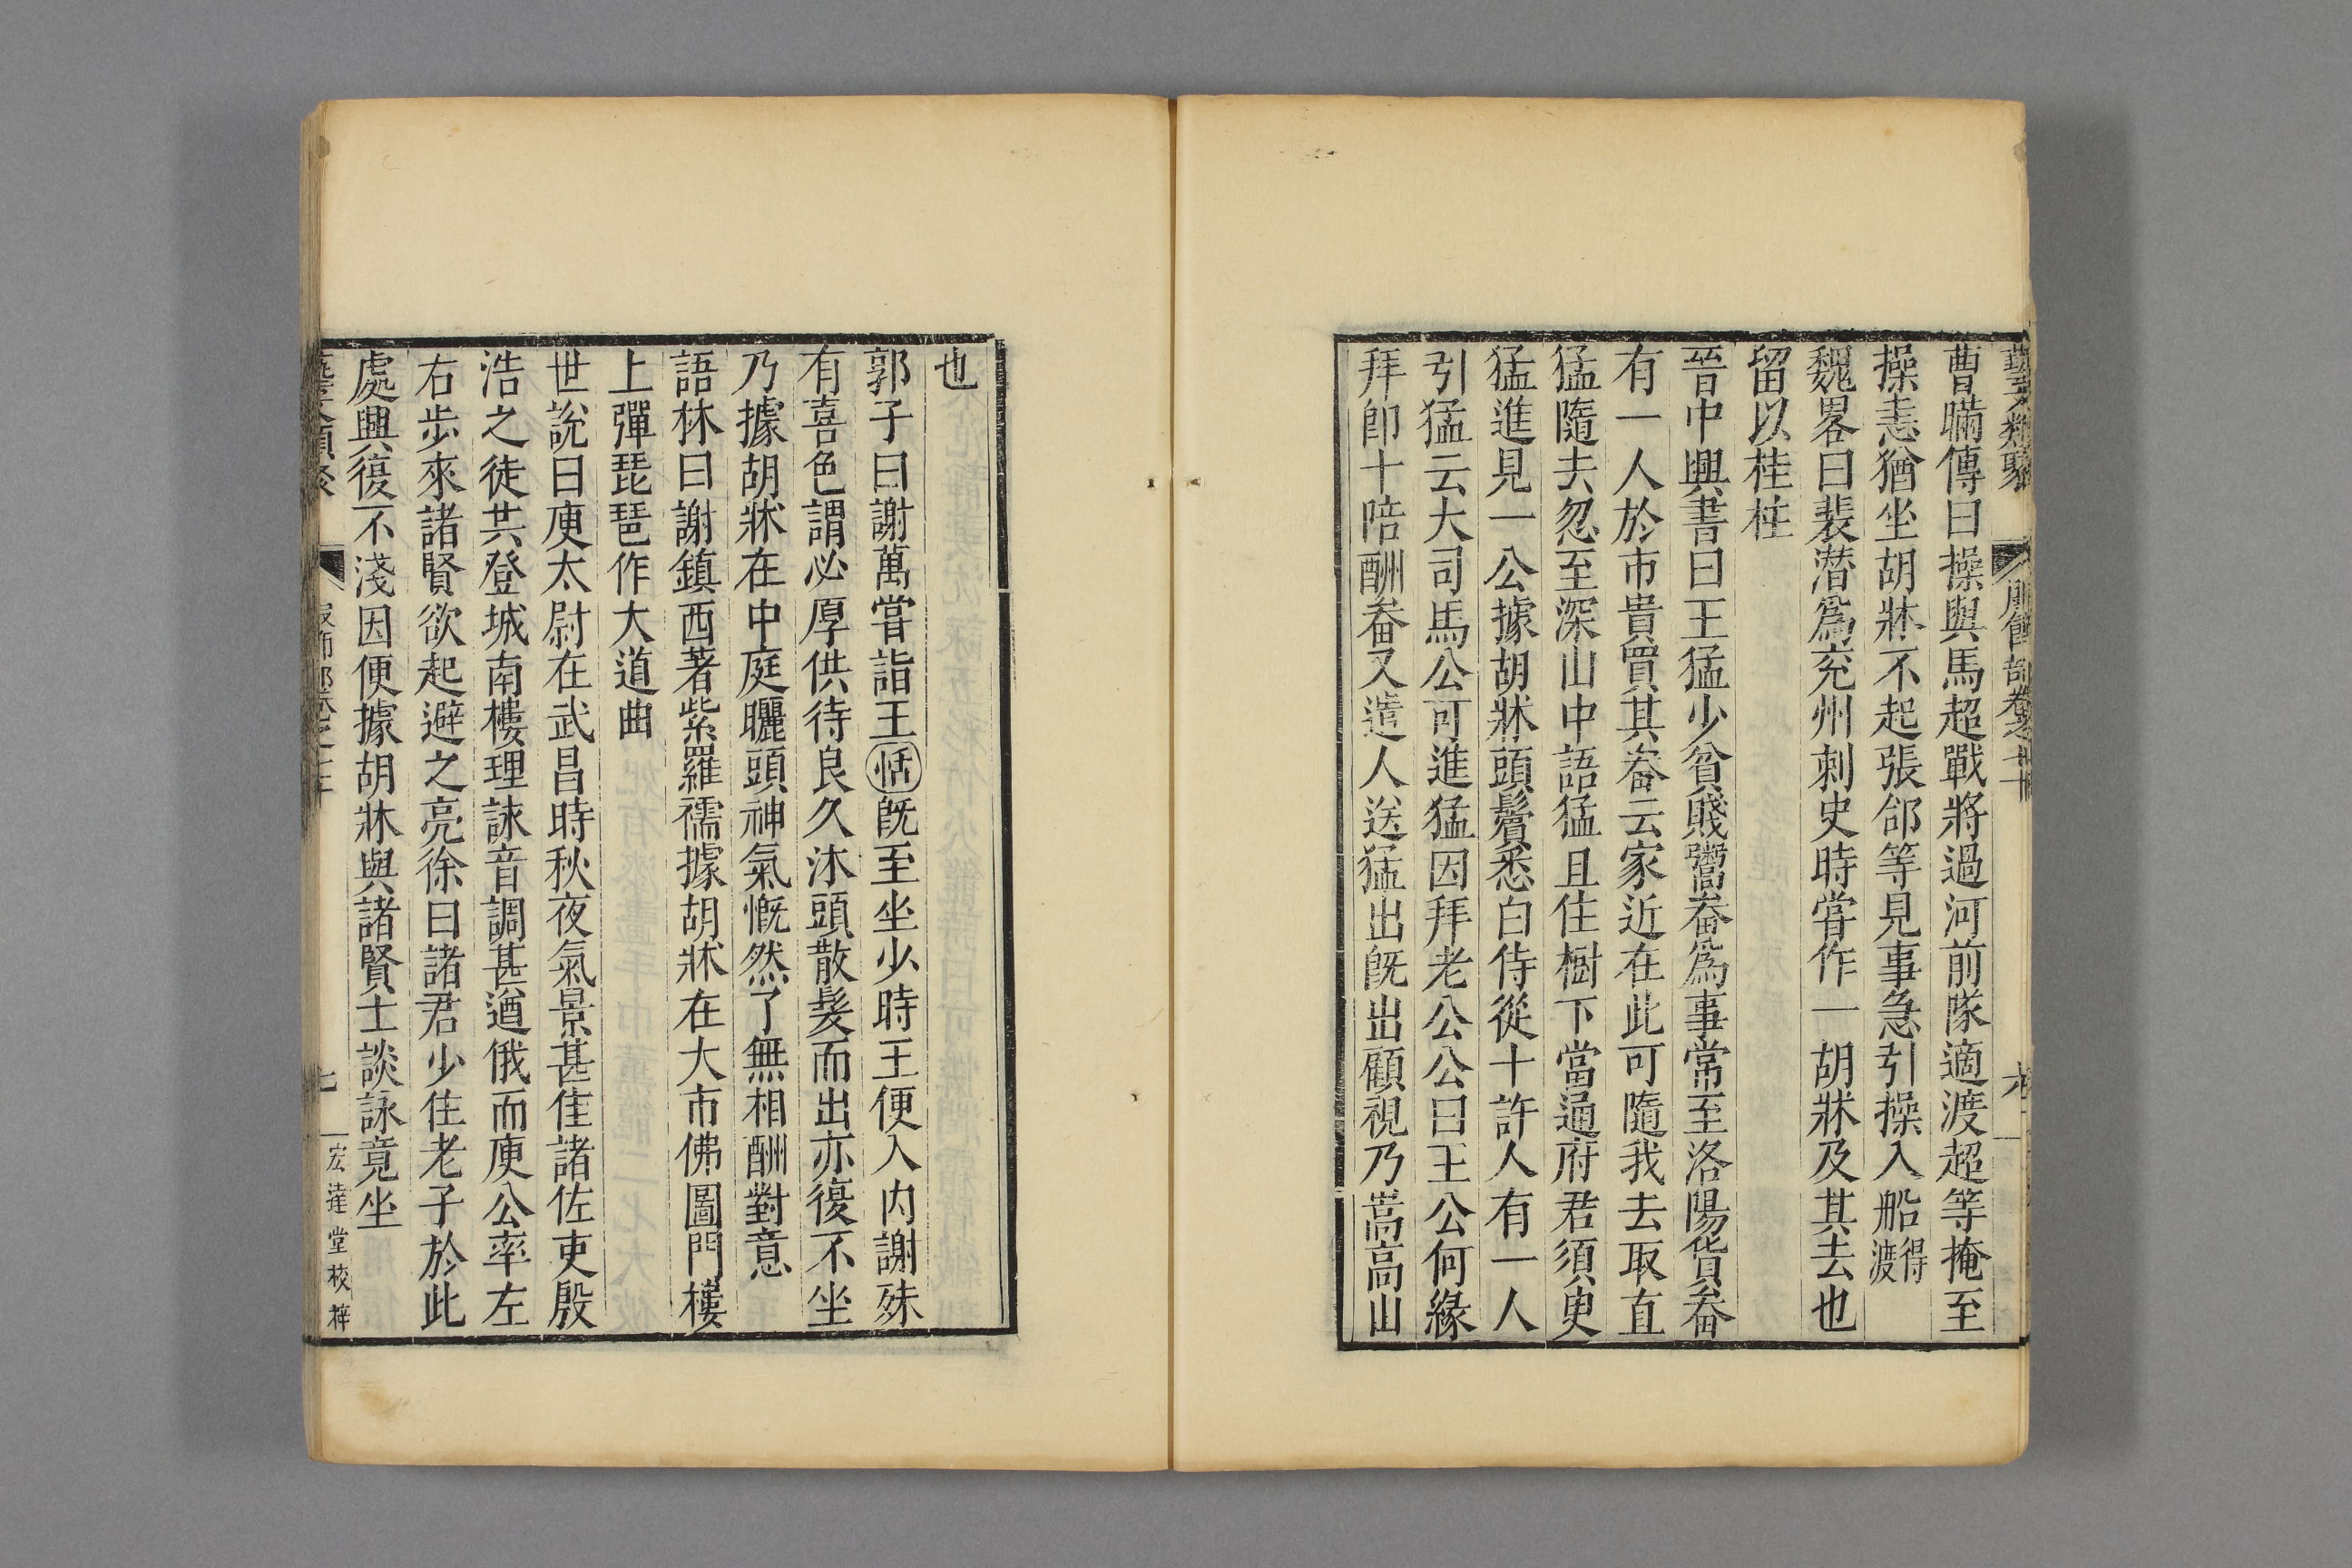 曹瞞傳曰操與馬超戰將過河前隊適渡超等掩至
操恚猶坐胡牀不起張郃等見事急引操入船得渡
魏畧曰裴潛爲兖州刺史時嘗作一胡牀及其去也
留以桂柱
晉中興書曰王猛少貧賤鬻畚爲事常至洛陽貨畚
有一人於市貴買其畚云家近在此可隨我去取直
猛隨去忽至深山中語猛且住樹下當通府君須臾
猛進見一公據胡牀頭鬢悉白侍從十許人有一人
引猛云大司馬公可進猛因拜老公公曰王公何緣
拜卽十陪酬畚又遣人送猛出旣出顧視乃嵩高山
也
郭子曰謝萬嘗詣王恬旣至坐少時王便入內謝殊
有喜色謂必厚供待良久沐頭散髮而出亦復不坐
乃據胡牀在中庭曬頭神氣慨然了無相酬對意
語林曰謝鎮西著紫羅襦據胡牀在大市佛圖門樓
上彈琵琶作大道曲
世說曰庾太尉在武昌時秋夜氣景甚佳諸佐吏殷
浩之徒共登城南樓理詠音調甚遒俄而庾公率左
右步來諸賢欲起避之亮徐曰諸君少住老子於此
處興復不淺因便據胡牀與諸賢士談詠竟坐
七 宏達堂校梓